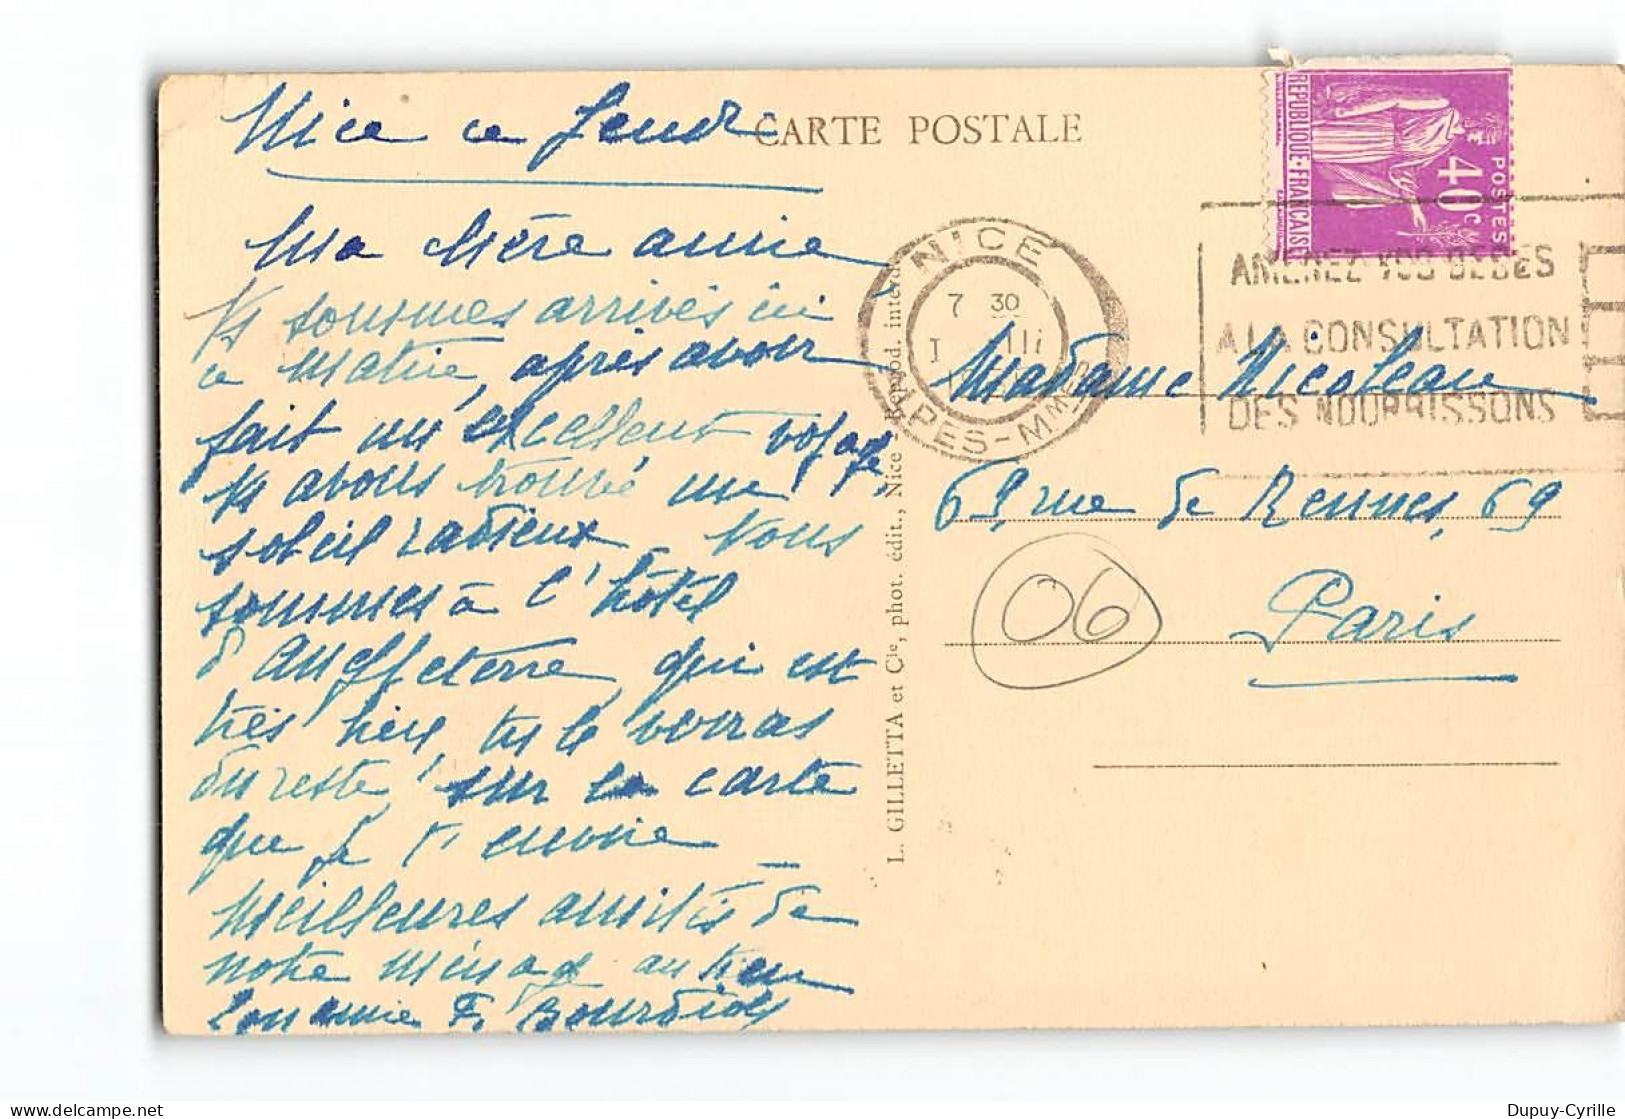 Nice ce Jeudi
CARTE POSTALE
Ma chère amie
Ns sommes arrivés ici
ce matin, après avoir
fait un excellent voyage,
Ns avons trouvé un
soleil radieux. Nous
sommes à l'hôtel
d'Angleterre, qui est
très bien, tu le verras
du reste, sur la carte
que je t'envoie –
Meilleures amitiés de
notre ménage au tien
Ton amie F.
REPUBLIQUE·FRANÇAISE
40c
POSTES
NICE
7 30
ALPES-MMES
AMENEZ VOS BEBES
A LA CONSULTATION
DES NOURRISSONS
Madame Nicoleau
69, rue de Rennes, 69
Paris
06
L. GILLETTA et Cie, phot. édit., Nice - Reprod. interd.
Dupuy-Cyrille